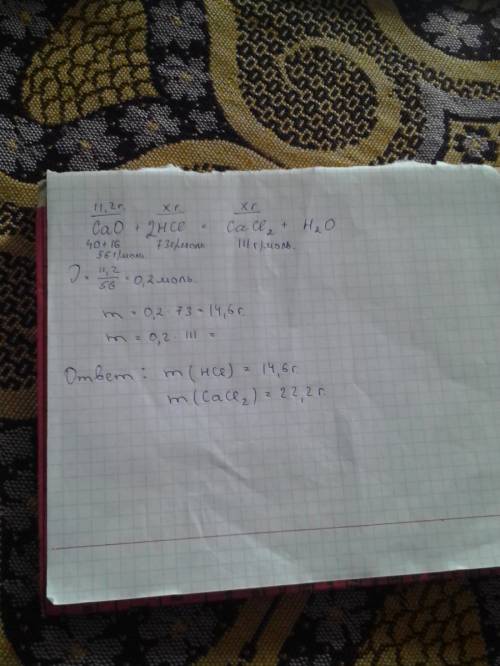 11,2г. xг. xг.
CaO + 2HCl = CaCl₂ + H₂O
40+16 73г/моль 111г/моль
56г/моль
ν = 11,2/56 = 0,2 моль.
m = 0,2 · 73 = 14,6г.
m = 0,2 · 111 =
Ответ: m(HCl) = 14,6г.
m(CaCl₂) = 22,2г.